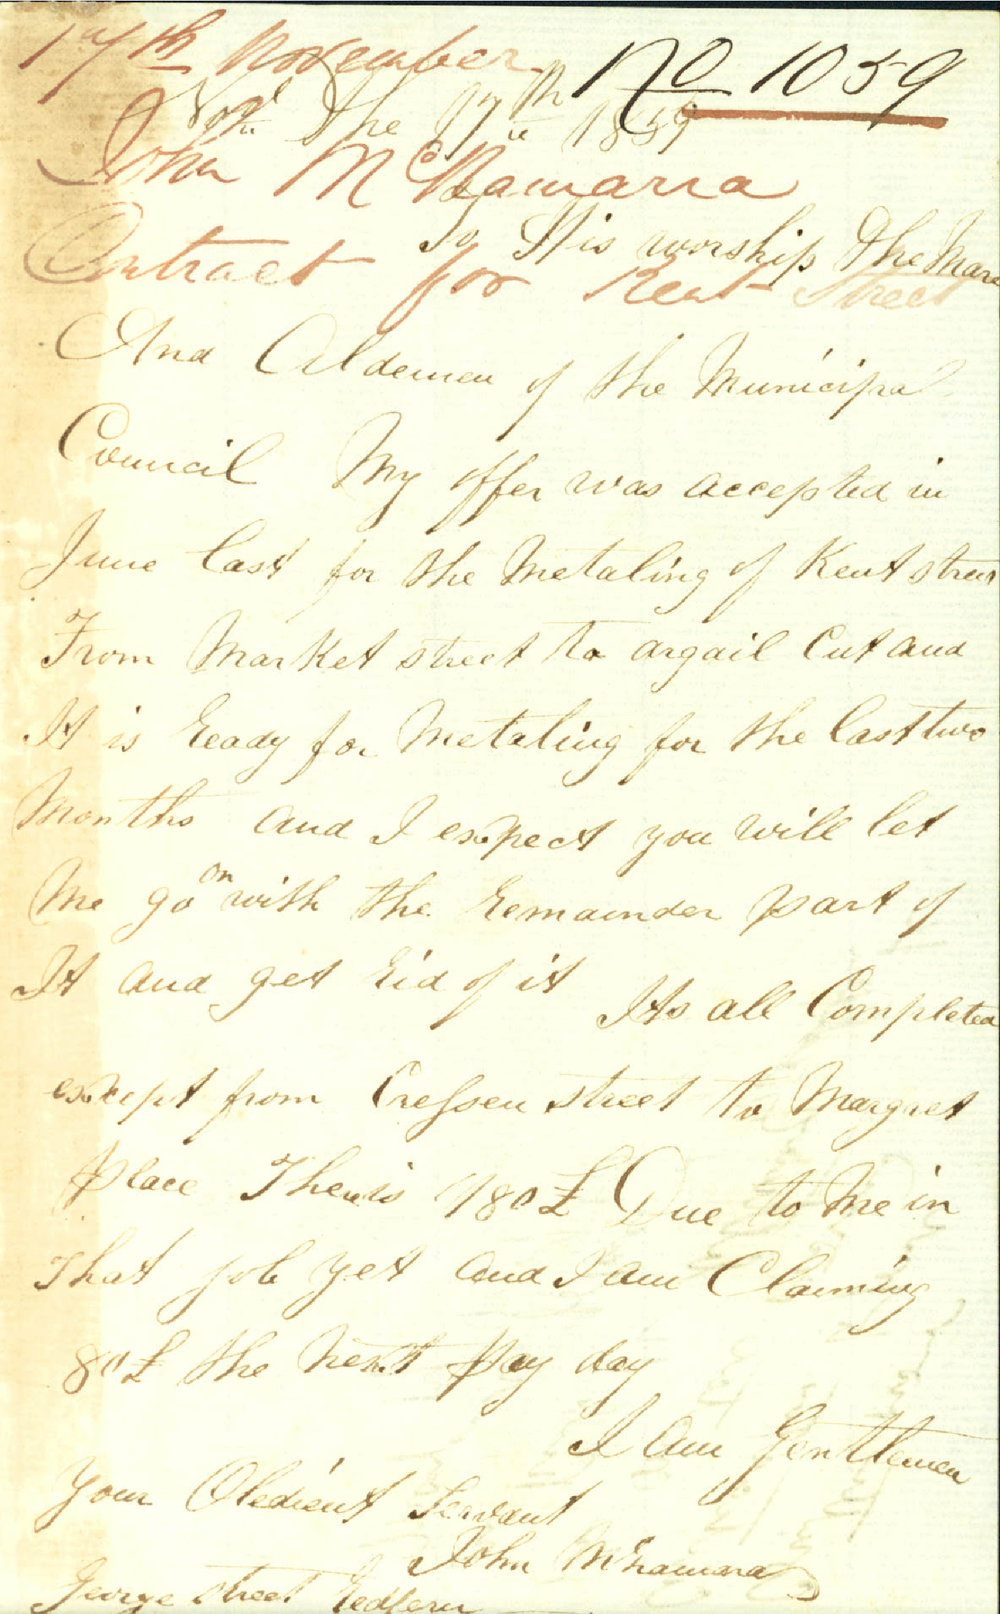 17th November No 1059
Novr the 17th 1859
John McNamarra
To His worship The Mare
Contract for Kent Street
And Aldemen of the Municipal
Council My offer was accepted in
June last for the Metaling of Kent street
From Market street to argail Cut and
It is Ready for Metaling for the last two
Months and I expect you will let
Me go on with the Remainder part of
It and get Rid of it Its all Completed
except from Cressen street to Margret
Place Theris 180£ Due to Me in
That job yet and I am Claiming
80£ the next Pay day
I am Gentlemen
Your Obedient Servant
John McNamara
George street Redfern